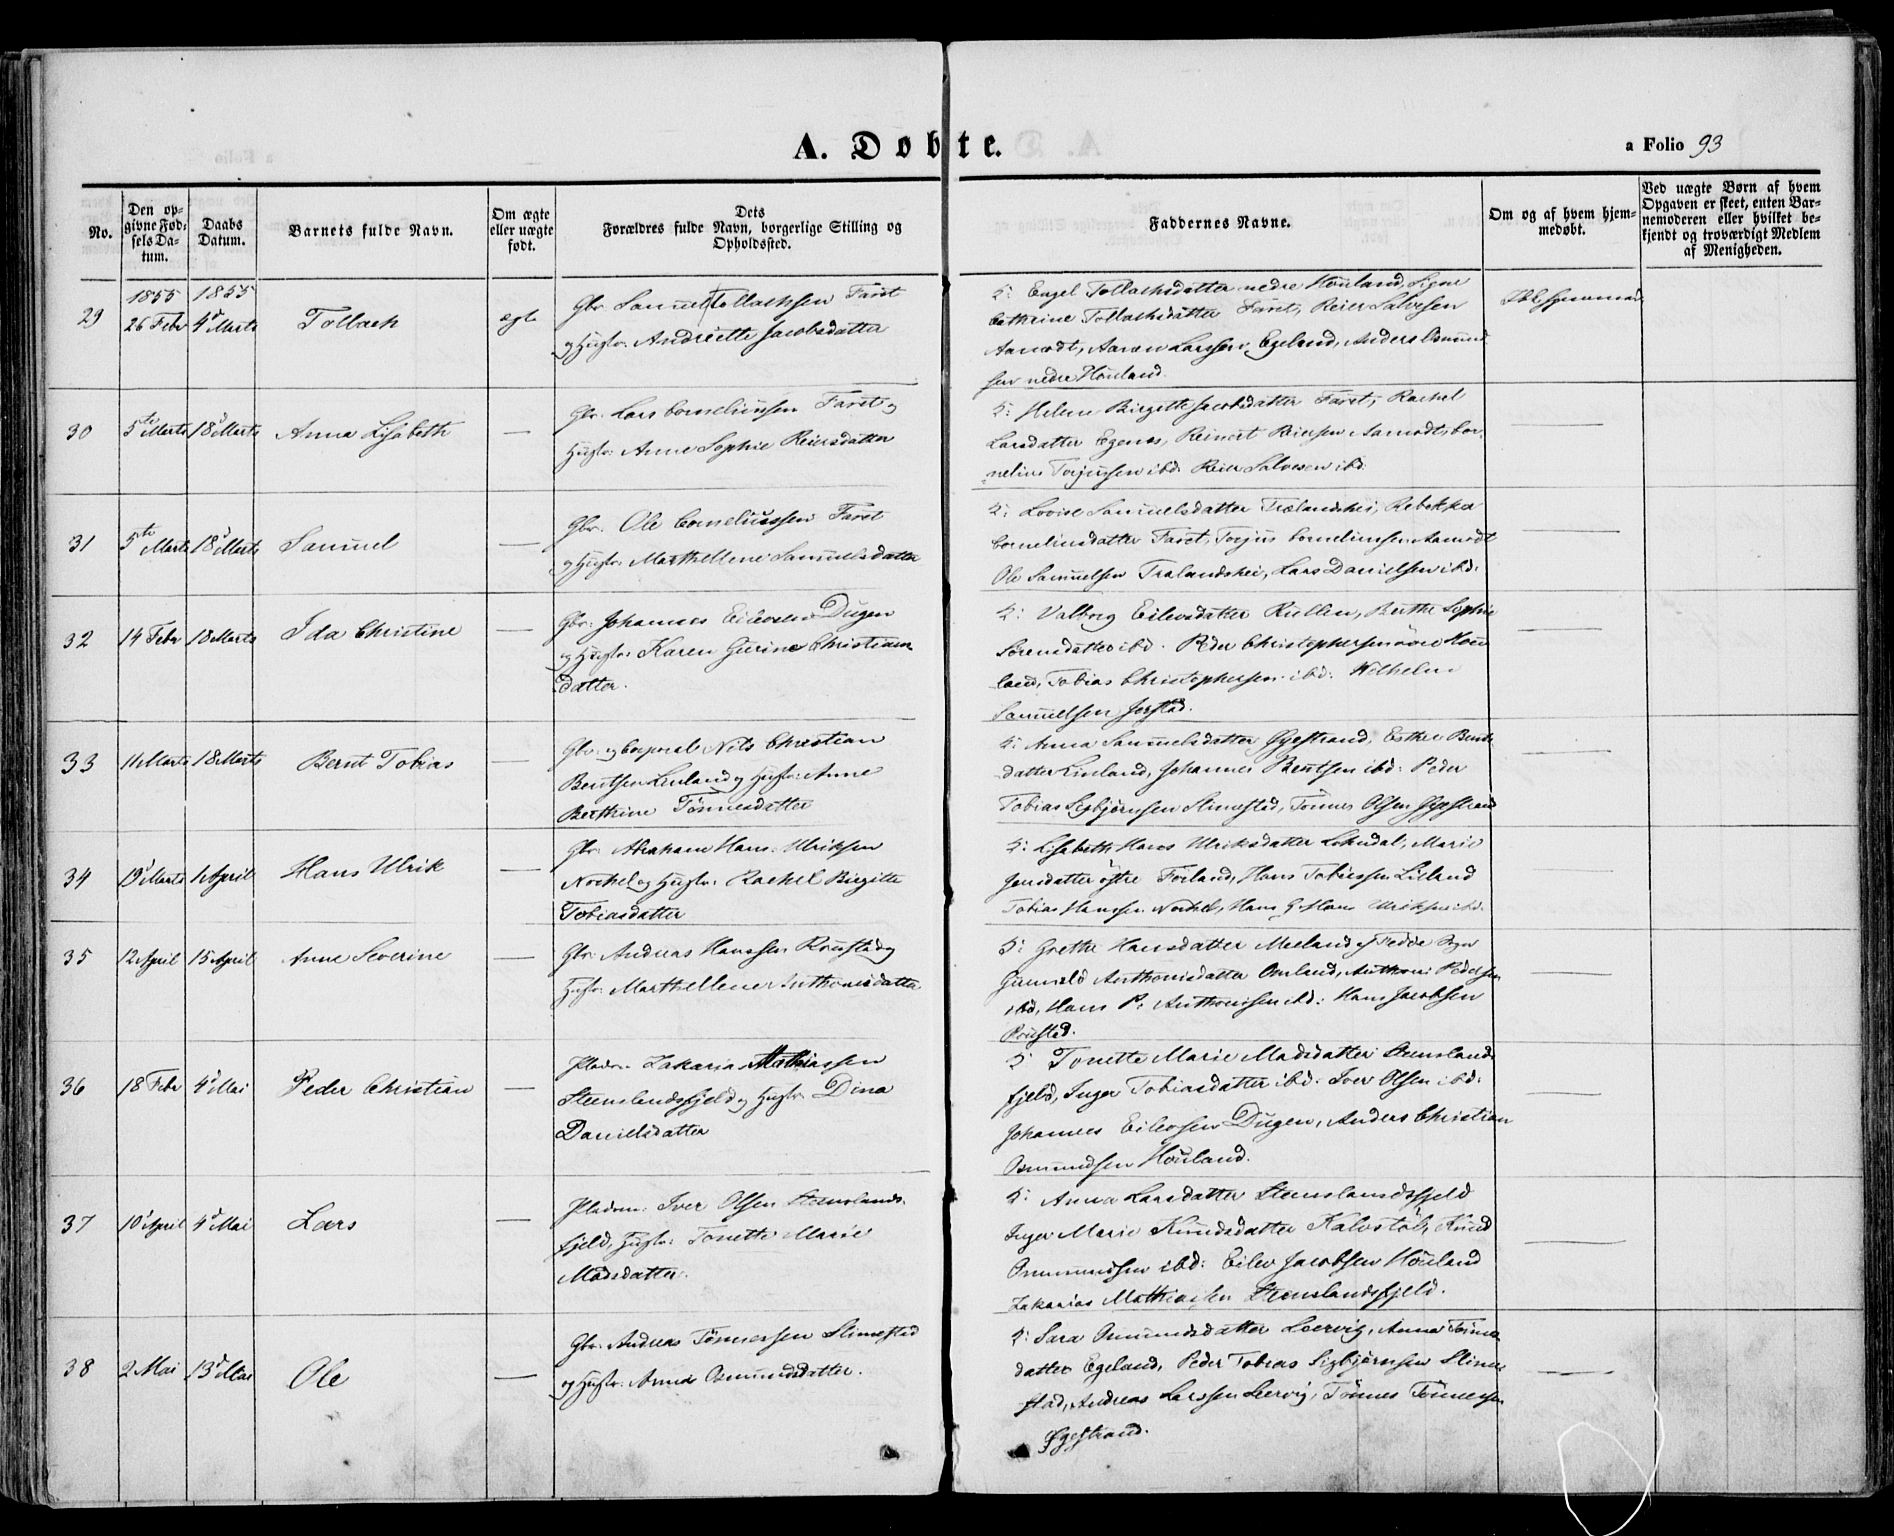 A. Døbte.
a Folio 93
No.
Den op-
givne Fød-
sels Da-
tum.
Daabs
Datum.
Barnets fulde Navn.
Om ægte
eller uægte
født.
Dets
Forældres fulde Navn, borgerlige Stilling og
Opholdssted.
Faddernes Navne.
Om og af hvem hjem-
medøbt.
Ved uægte Børn af hvem
Opgaven er skeet, enten Bar-
nemoderen eller hvilket be-
kjendt og troværdigt Medlem
af Menigheden.
29
1855
26 Febr
1855
4d Marts
Tollach
ægte
Gbr. Samuel Tollachsen Faret
og Hustr: Andreette Jacobsdatter
F: Engel Tollachsdatter nedre Houland, Signe
Cathrine Tollachsdatter Faret, Reier Salvesen
Aamodt, Aanen Larssen Egeland, Anders Osmund
sen nedre Houland.
30
5te Marts
18d Marts
Anna Lisabeth
—
Gbr. Lars Corneliussen Faret og
Hustr: Anne Sophie Reiersdatter
F: Helene Birgitte Jacobsdatter Faret, Rachel
Larsdatter Egenes, Reinert Reiersen Aamodt, Cor-
nelius Torjussen ibd. Reier Salvesen ibd.
—
31
5te Marts
18d Marts
Samuel
—
Gbr. Ole Corneliussen Faret
og Hustr: Marthellene Samuelsdatter
F: Lovise Samuelsdatter Trælandshei, Rebekka
Corneliusdatter Faret, Torjus Corneliussen Aamodt
Ole Samuelsen Trælandshei, Lars Danielsen ibd.
—
32
14 Febr
18 Marts
Ida Christine
—
Gbr: Johannes Eilevsen Dugen
og Hustr: Karen Gurine Christians
datter.
F: Valborg Eilevsdatter Rullen, Berthe Sophie
Sørensdatter ibd. Peder Christophersen øvre Hou
land, Tobias Christophersen ibd: Wilhelm
Samuelsen Jerstad.
—
33
11 Marts
18 Marts
Bernt Tobias
—
Gbr. og Corporal Nils Christian
Berntsen Linland og Hustr: Anne
Berthine Tønnesdatter
F: Anna Samuelsdatter Øyestrand, Esther Bernts
datter Linland, Johannes Berntsen ibd: Peder
Tobias Sigbjørnsen Slimestad, Tønnes Olsen Øyestrand
—
34
19d Marts
1 April
Hans Ulrik
—
Gbr: Abraham Hans. Ulriksen
og Hustr: Rachel Birgitte
Tobiasdatter
F: Lisabeth Hans Ulriksdatter Lohndal, Marie
Jensdatter østre Foeland, Hans Tobiassen Lilland
Tobias Hanssen Hans G. Hans Ulriksen ibd.
—
35
12 April
15 April
Anne Severine
—
Gbr: Andreas Hanssen Roustad og
Hustr: Marthellene Anthonisdatter
F: Grethe Hansdatter Meeland af Fedde Sogn
Gunvald Anthonisdatter Omland, Anthoni Pedersen
ibd, Hans P. Anthonissen ibd: Hans Jacobsen
Roustad.
—
36
18 Febr
4d Mai
Peder Christian
—
Pladsm: Zakarias Mathiassen
Steenslandsfjeld og Hustr: Dina
Danielsdatter
F: Tonette Marie Madsdatter Steenslands
fjeld, Inger Tobiasdatter ibd. Iver Olsen ibd:
Johannes Eilevsen Dugen, Anders Christian
Osmundsen Houland.
—
37
10d April
4d Mai
Lars
—
Pladsm: Iver Olsen Steenslands-
fjeld, Hustr: Tonette Marie
Madsdatter.
F: Anna Larsdatter Steenslandsfjeld
Inger Marie Knudsdatter Kalvstøl, Knud
Osmundsen ibd: Eilev Jacobsen Houland
Zakarias Mathiassen Steenslandsfjeld.
—
38
2 Mai
13d Mai
Ole
—
Gbr: Andreas Tønnessen Slimestad
og Hustr: Anne Osmundsdatter.
F: Sara Osmundsdatter Leervig, Anna Tønnes
datter Egeland, Peder Tobias Sigbjørnsen Slime
stad, Andreas Larssen Leervig, Tønnes Tønnessen
Øyestrand.
—